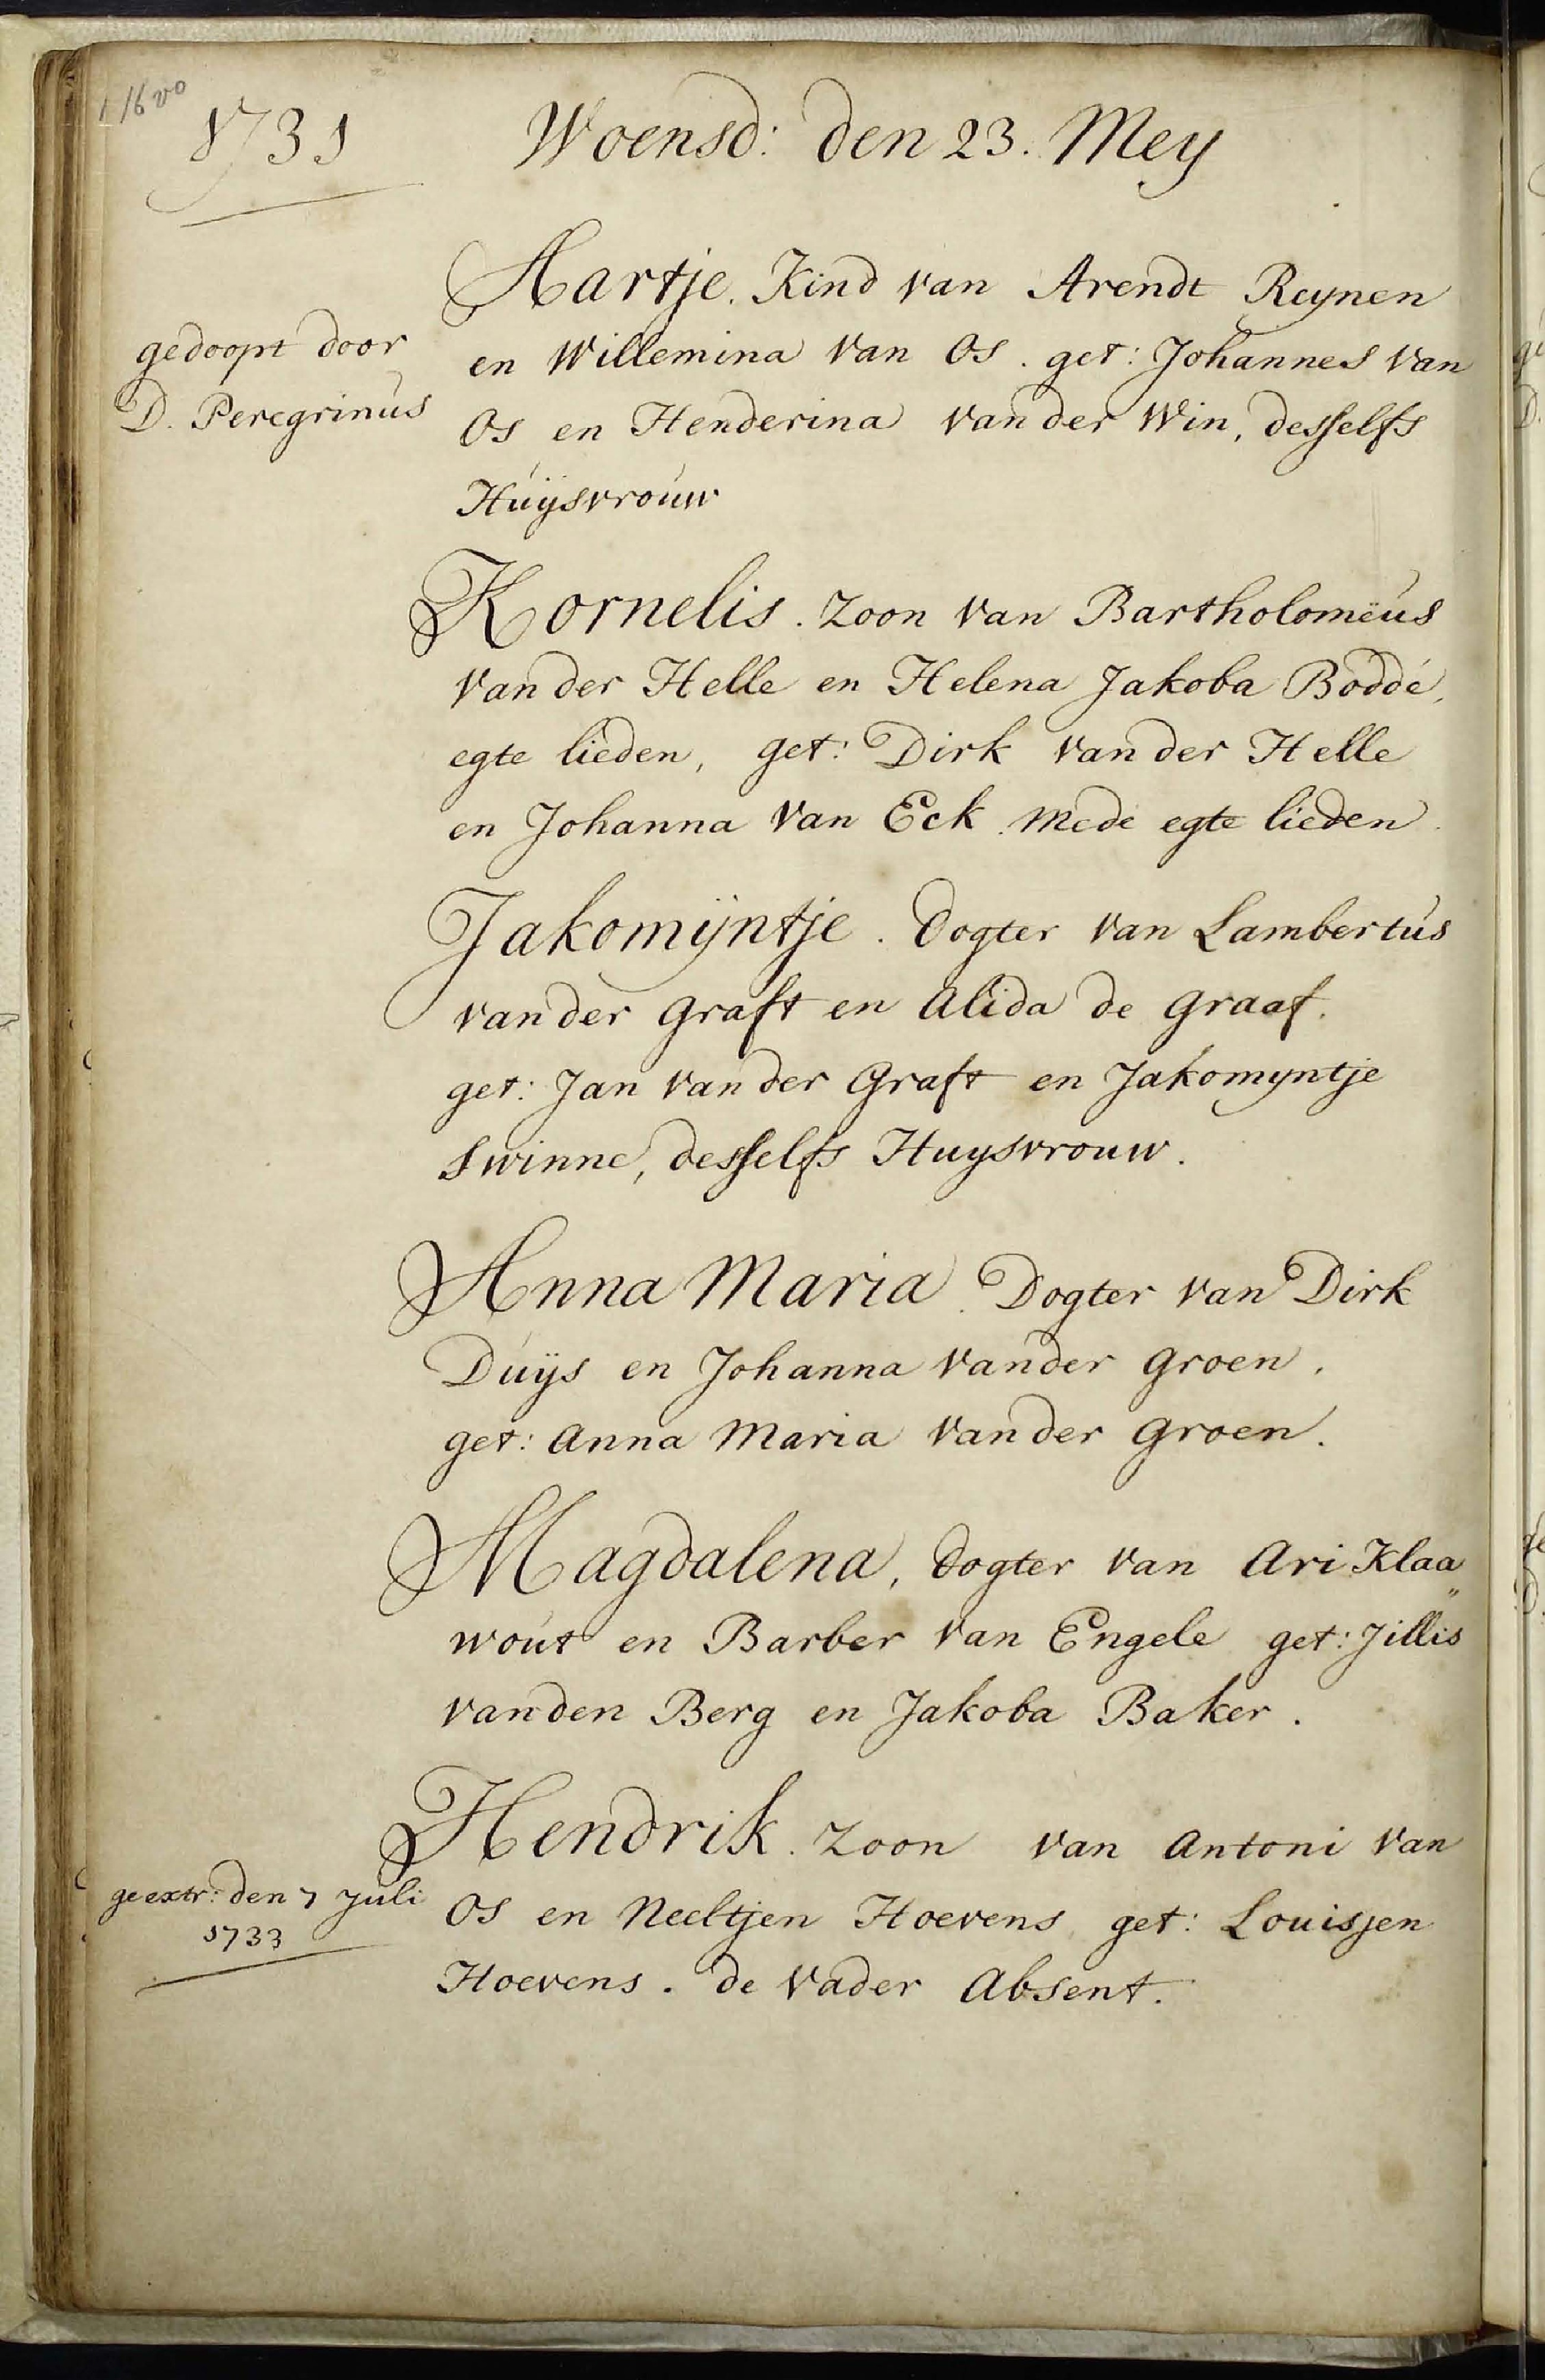 116 vo
1731 Woensd: den 23. Mey
Aartje. Kind van Arendt Reynen
gedoopt door
D. Peregrinus
en Willemina van Os. get: Johannes van
Os en Henderina vander Win, desselfs
Huÿsvrouw
Kornelis. Zoon van Bartholomëus
vander Helle en Helena Jakoba Boddé,
egte lieden, get: Dirk vander Helle
en Johanna van Eck. mede egte lieden.
Jakomÿntje. Dogter van Lambertus
vander Graft en Alida de Graaf.
get: Jan vander Graft en Jakomyntje
Swinne, desselfs Huysvrouw.
Anna Maria. Dogter van Dirk
Duÿs en Johanna vander Groen.
get: Anna Maria vander Groen.
Magdalena, Dogter van Ari Klaa„
wout en Barber van Engele get: Jillis
vanden Berg en Jakoba Baker.
Hendrik. Zoon van Antoni van
geextr: den 7 Juli
1733
Os en Neeltjen Hoevens, get: Louisjen
Hoevens. de vader Absent.